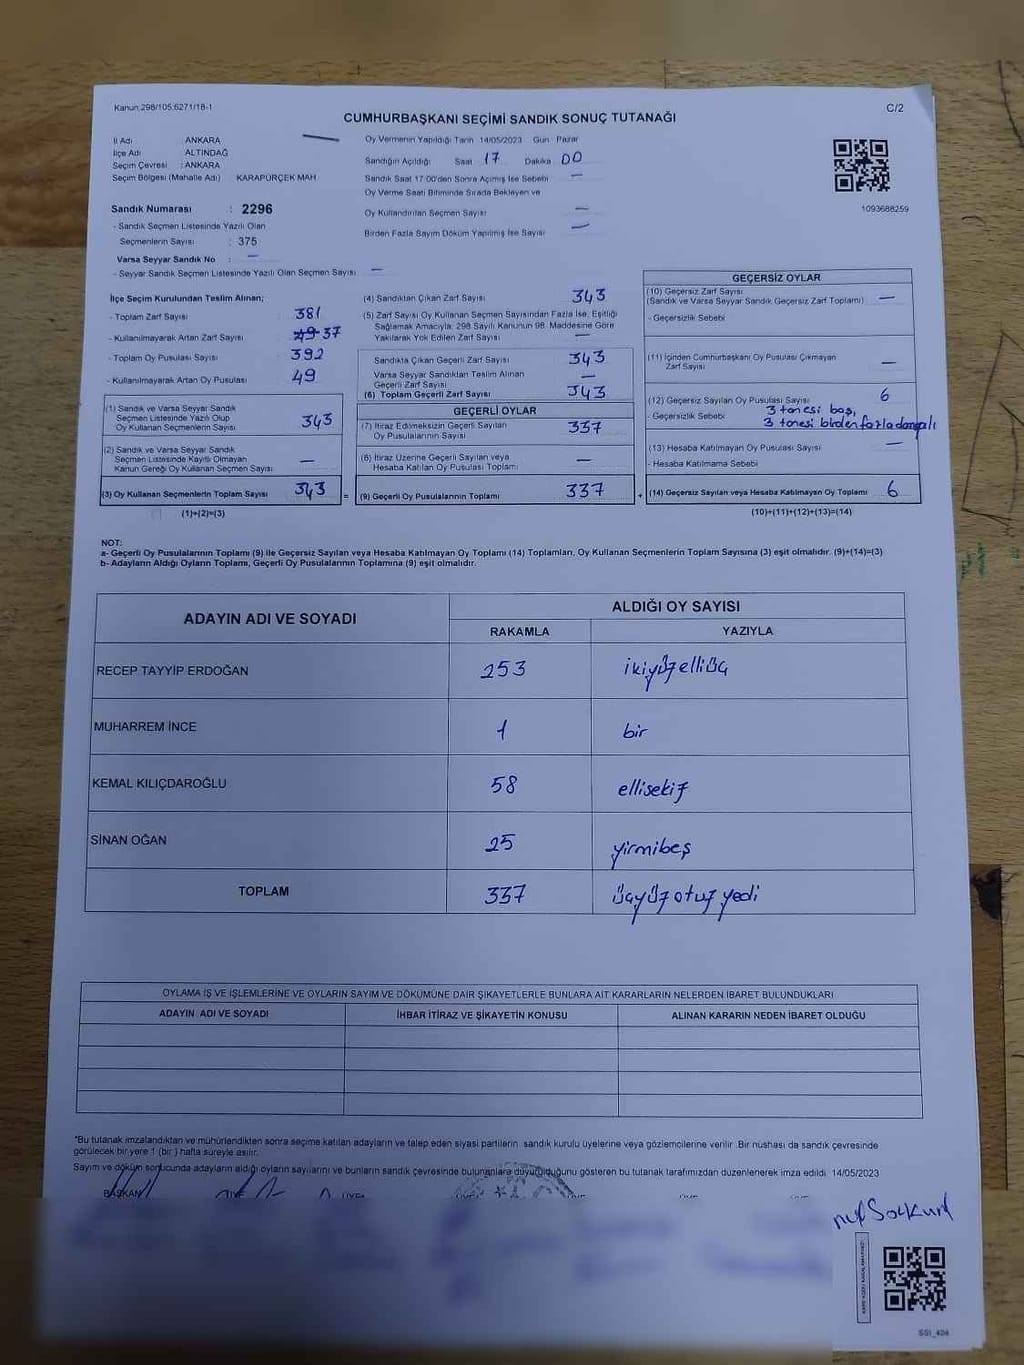 Kanun;298/105;6271/18-1
C/2
CUMHURBAŞKANI SEÇİMİ SANDIK SONUÇ TUTANAĞI
İl Adı ANKARA
İlçe Adı ALTINDAĞ
Seçim Çevresi : ANKARA
Seçim Bölgesi (Mahalle Adı) KARAPÜRÇEK MAH.
Sandık Numarası : 2296
- Sandık Seçmen Listesinde Yazılı Olan
Seçmenlerin Sayısı : 375
Varsa Seyyar Sandık No : —
- Seyyar Sandık Seçmen Listesinde Yazılı Olan Seçmen Sayısı —
Oy Vermenin Yapıldığı Tarih 14/05/2023 Gün Pazar
Sandığın Açıldığı Saat 17 Dakika 00
Sandık Saat 17:00'den Sonra Açılmış İse Sebebi —
Oy Verme Saati Bitiminde Sırada Bekleyen ve
Oy Kullandırılan Seçmen Sayısı —
Birden Fazla Sayım Döküm Yapılmış İse Sayısı —
1093688259
İlçe Seçim Kurulundan Teslim Alınan;
- Toplam Zarf Sayısı 381
- Kullanılmayarak Artan Zarf Sayısı 49 37
- Toplam Oy Pusulası Sayısı 392
- Kullanılmayarak Artan Oy Pusulası 49
(1) Sandık ve Varsa Seyyar Sandık
Seçmen Listesinde Yazılı Olup
Oy Kullanan Seçmenlerin Sayısı 343
(2) Sandık ve Varsa Seyyar Sandık
Seçmen Listesinde Kayıtlı Olmayan
Kanun Gereği Oy Kullanan Seçmen Sayısı —
(3) Oy Kullanan Seçmenlerin Toplam Sayısı 343 =
(1)+(2)=(3)
(4) Sandıktan Çıkan Zarf Sayısı 343
(5) Zarf Sayısı Oy Kullanan Seçmen Sayısından Fazla İse, Eşitliği
Sağlamak Amacıyla; 298 Sayılı Kanunun 98. Maddesine Göre
Yakılarak Yok Edilen Zarf Sayısı —
Sandıkta Çıkan Geçerli Zarf Sayısı 343
Varsa Seyyar Sandıktan Teslim Alınan
Geçerli Zarf Sayısı —
(6) Toplam Geçerli Zarf Sayısı 343
GEÇERLİ OYLAR
(7) İtiraz Edilmeksizin Geçerli Sayılan
Oy Pusulalarının Sayısı 337
(8) İtiraz Üzerine Geçerli Sayılan veya
Hesaba Katılan Oy Pusulası Toplamı —
(9) Geçerli Oy Pusulalarının Toplamı 337 +
GEÇERSİZ OYLAR
(10) Geçersiz Zarf Sayısı
(Sandık ve Varsa Seyyar Sandık Geçersiz Zarf Toplamı) —
- Geçersizlik Sebebi
(11) İçinden Cumhurbaşkanı Oy Pusulası Çıkmayan
Zarf Sayısı —
(12) Geçersiz Sayılan Oy Pusulası Sayısı 6
- Geçersizlik Sebebi 3 tanesi boş,
3 tanesi birden fazla damgalı
(13) Hesaba Katılmayan Oy Pusulası Sayısı —
- Hesaba Katılmama Sebebi
(14) Geçersiz Sayılan veya Hesaba Katılmayan Oy Toplamı 6
(10)+(11)+(12)+(13)=(14)
NOT:
a- Geçerli Oy Pusulalarının Toplamı (9) ile Geçersiz Sayılan veya Hesaba Katılmayan Oy Toplamı (14) Toplamları, Oy Kullanan Seçmenlerin Toplam Sayısına (3) eşit olmalıdır. (9)+(14)=(3)
b- Adayların Aldığı Oyların Toplamı, Geçerli Oy Pusulalarının Toplamına (9) eşit olmalıdır.
ADAYIN ADI VE SOYADI ALDIĞI OY SAYISI
RAKAMLA YAZIYLA
RECEP TAYYİP ERDOĞAN 253 ikiyüzelliüç
MUHARREM İNCE 1 bir
KEMAL KILIÇDAROĞLU 58 ellisekiz
SİNAN OĞAN 25 yirmibeş
TOPLAM 337 üçyüz otuz yedi
OYLAMA İŞ VE İŞLEMLERİNE VE OYLARIN SAYIM VE DÖKÜMÜNE DAİR ŞİKAYETLERLE BUNLARA AİT KARARLARIN NELERDEN İBARET BULUNDUKLARI
ADAYIN ADI VE SOYADI İHBAR İTİRAZ VE ŞİKAYETİN KONUSU ALINAN KARARIN NEDEN İBARET OLDUĞU
*Bu tutanak imzalandıktan ve mühürlendikten sonra seçime katılan adayların ve talep eden siyasi partilerin sandık kurulu üyelerine veya gözlemcilerine verilir. Bir nüshası da sandık çevresinde
görülecek bir yere 1 (bir) hafta süreyle asılır.
Sayım ve döküm sonucunda adayların aldığı oyların sayılarını ve bunların sandık çevresinde bulunanlara duyurulduğunu gösteren bu tutanak tarafımızdan düzenlenerek imza edildi. 14/05/2023
BAŞKAN ÜYE ÜYE ÜYE ÜYE